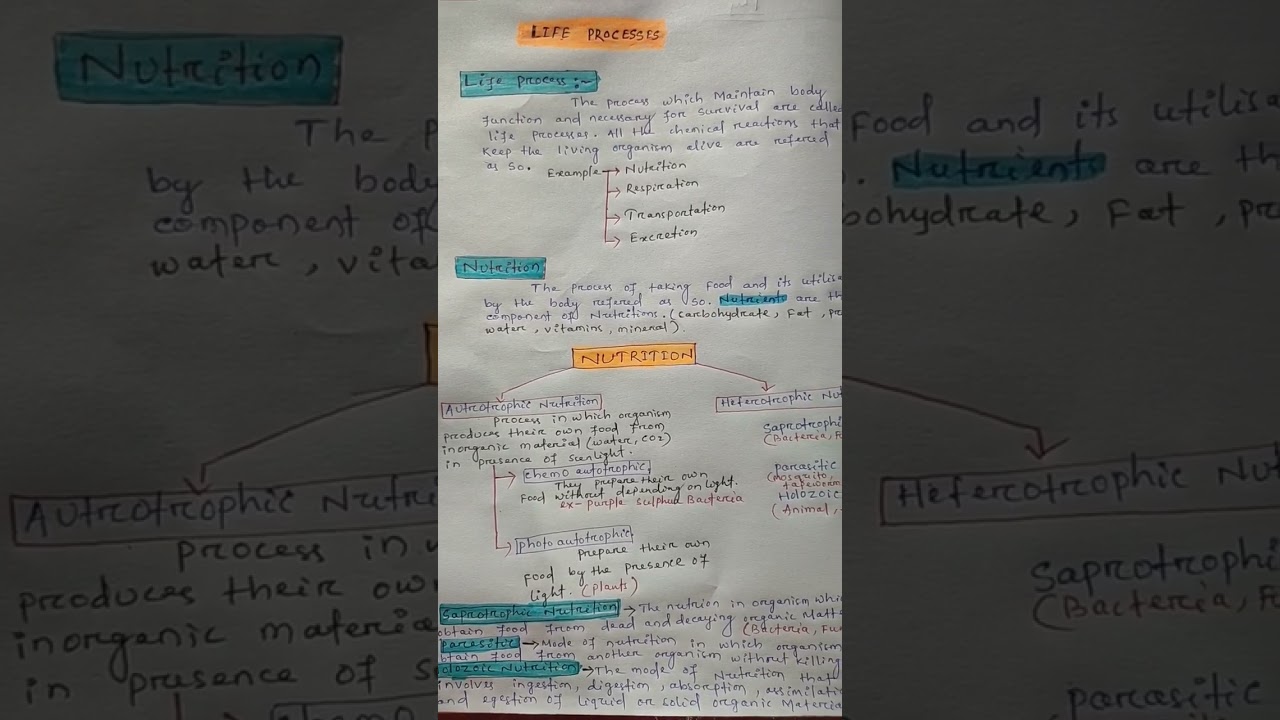 LIFE PROCESSES
Life process :~
The process which Maintain body
function and necessary for survival are calle
life processes. All the chemical reactions that
keep the living organism alive are refered
as so.
Example → Nutrition
→ Respiration
→ Transportation
→ Excretion
Nutrition
The process of taking Food and its utilis
by the body refered as so. Nutrients are th
component of Nutritions. (carbohydrate, Fat, pr
water, vitamins, mineral).
NUTRITION
Autrotrophic Nutrition
process in which organism
produces their own food from
inorganic material (water, CO2)
in presence of sunlight.
chemo autotrophic
They prepare their own
Food without depending on light.
ex- purple sulphur Bacteria
photo autotrophic
prepare their own
food by the presence of
light. (plants)
Heterotrophic Nut
Saprotrophi
(Bacteria, Fu
parasitic
(mosquito,
tapeworm
Holozoic
(Animal,
Saprotrophic Nutrition → The nutrion in organism whi
obtain food from dead and decaying organic Matt
(Bacteria, Fun
parasitic → Mode of nutrition in which organism
btain food from another organism without killing
olozoic Nutrition → The mode of Nutrition that
involves ingestion, digestion, absorption, assimilati
and egestion of liquid or solid organic Materia
Nutrition
The p
by the body
component of
water, vita
Food and its utilisa
. Nutrients are th
bohydrate, Fat, pro
Autrotrophic Nutri
process in w
produces their own
inorganic materia
in presence of su
Heterotrophic Nu
Saprotrophi
(Bacteria, F
parasitic